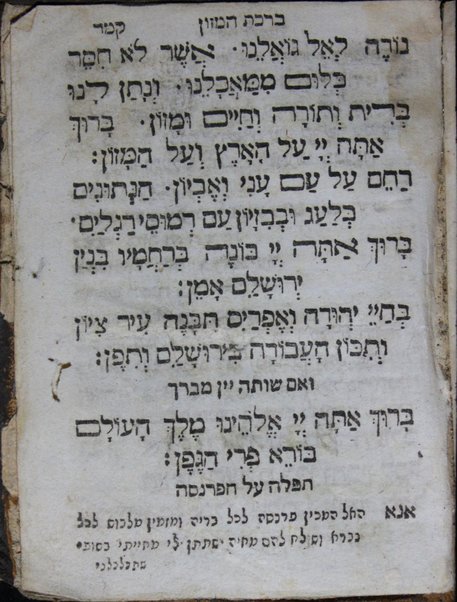 ברכת המזון קמד
נוֹדֶה לָאֵל גּוֹאֲלֵנוּ· אֲשֶׁר לֹא חִסֵּר
כְּלוּם מִמַּאֲכָלֵנוּ· וְנָתַן לָנוּ
בְּרִית וְתוֹרָה וְחַיִּים וּמָזוֹן· בָּרוּךְ
אַתָּה יְיָ עַל הָאָרֶץ וְעַל הַמָּזוֹן:
רַחֵם עַל עַם עָנִי וְאֶבְיוֹן· הַנְּתוּנִים
בְּלַעַג וּבְבִזָּיוֹן עַם רְמוּסֵי רַגְלַיִם·
בָּרוּךְ אַתָּה יְיָ בּוֹנֶה בְּרַחֲמָיו בִּנְיַן
יְרוּשָׁלַם אָמֵן:
בְּחַיֵּי יְהוּדָה וְאֶפְרַיִם תִּבָּנֶה עִיר צִיּוֹן
וְתִכּוֹן הָעֲבוֹדָה בִּירוּשָׁלַם
ואם שותה יין מברך
בָּרוּךְ אַתָּה יְיָ אֱלֹהֵינוּ מֶלֶךְ הָעוֹלָם
בּוֹרֵא פְּרִי הַגֶּפֶן:
תפלה על הפרנסה
אנא האל המכין פרנסה לכל בריה ומזמין מלבוש לכל
נברא ושולח להם מחיה שתתן לי מחייתי
שתכלכלני